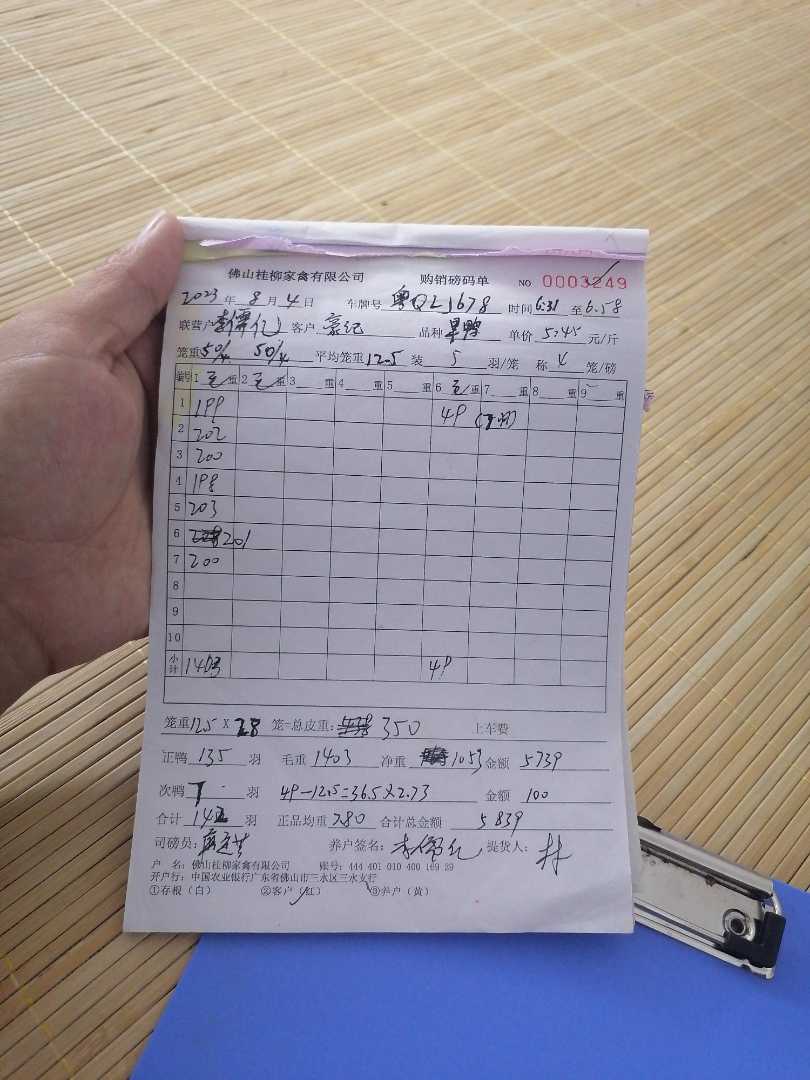 佛山桂柳家禽有限公司 购销磅码单 NO 0003249
2023年8月4日 车牌号 粤QLJ678 时间6:31至6:58
联营户 客户 品种 单价5.45元/斤
笼重50/4 50/4 平均笼重12.5装5羽/笼 称4笼/磅
编号 1 重 2 重 3 重 4 重 5 重 6 重 7 重 8 重 9 重
1 199 49
2 202
3 200
4 198
5 203
6 201
7 200
8
9
10
小计 1403 49
笼重12.5X28 笼=总皮重:350 上车费
正鸭135羽 毛重1403净重1053金额5739
次鸭7羽 49-12.5=36.5×2.73 金额100
合计142羽 正品均重7.80合计总金额5839
司磅员: 养户签名: 提货人: 林
户 名:佛山桂柳家禽有限公司 账号:444 401 010 400 169 29
开户行:中国农业银行广东省佛山市三水区三水支行
①存根(白) ②客户(红) ③养户(黄)